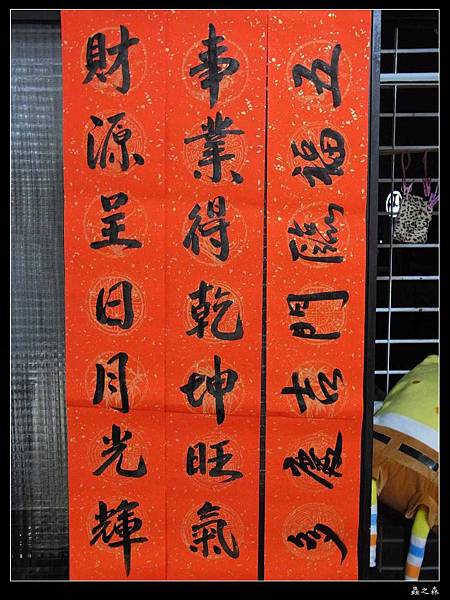 五福臨門吉慶多
事業得乾坤旺氣
財源呈日月光輝
蟲之森